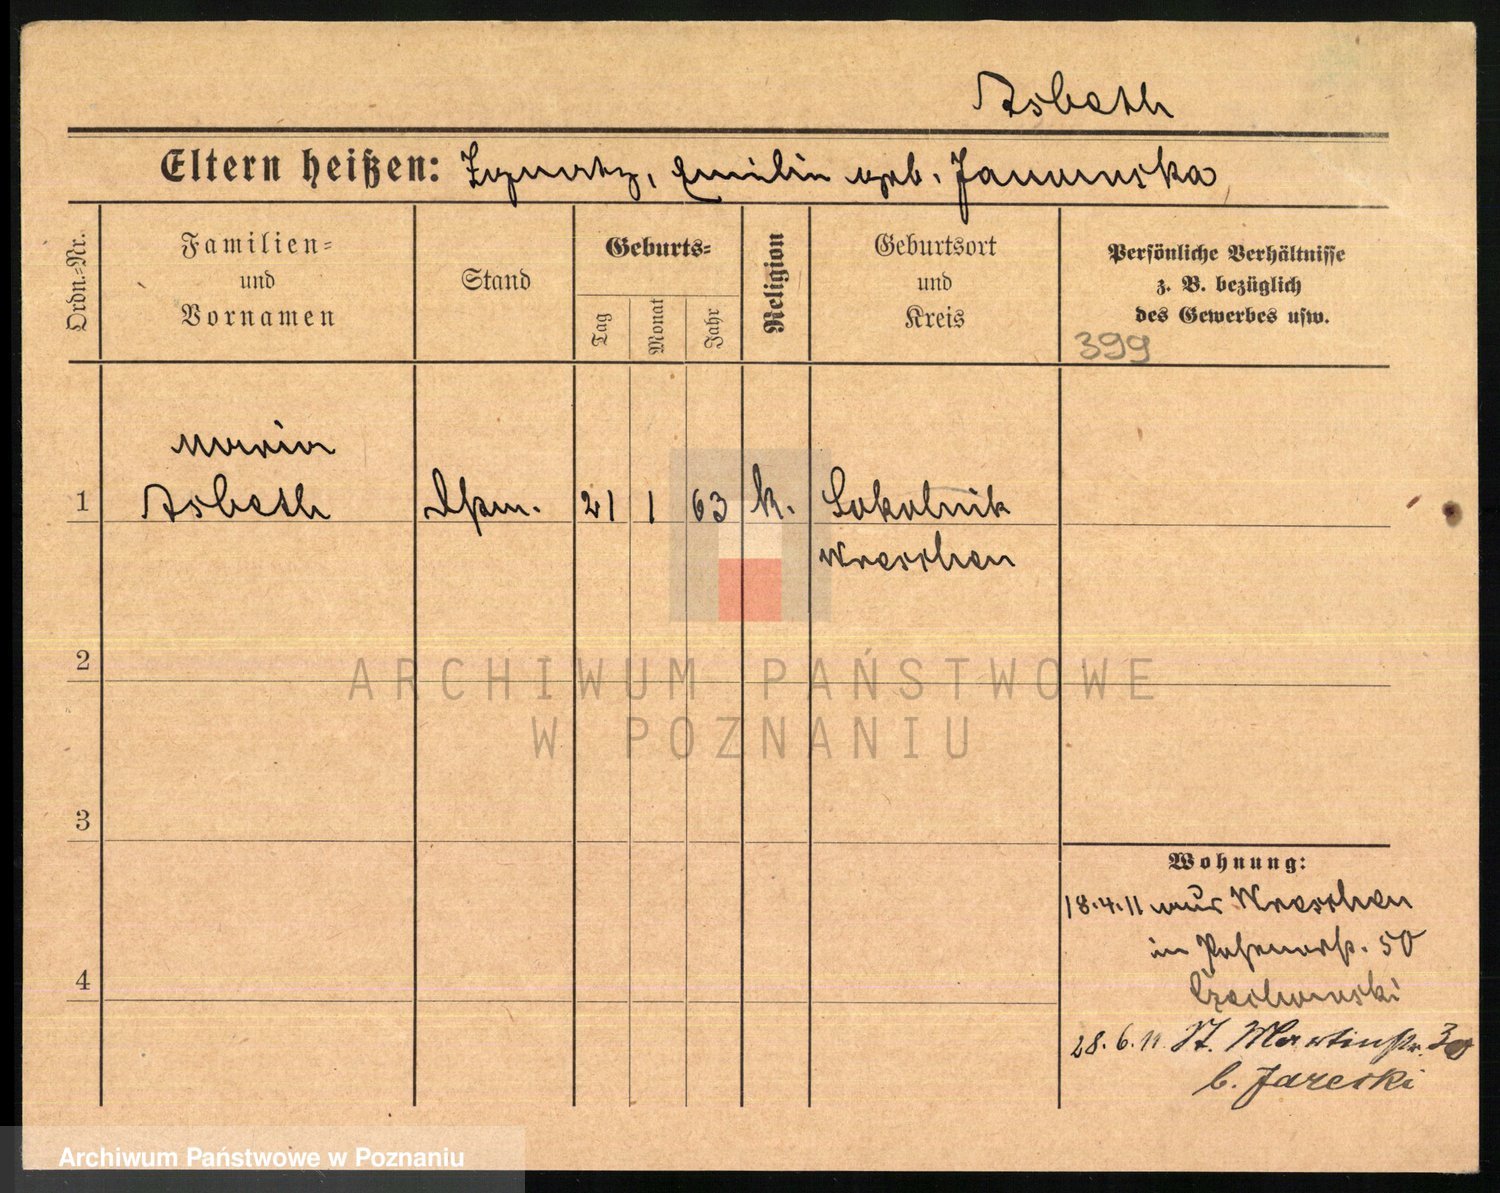 Asbeth
Eltern heißen: Ignatz, Emilie geb. Janowska
Ordn.-Nr.
Familien-
und
Vornamen
Stand
Geburts-
Tag
Monat
Jahr
Religion
Geburtsort
und
Kreis
Persönliche Verhältnisse
z. B. bezüglich
des Gewerbes usw.
399
Maria
1 Asbeth 21 1 63 k. Sokolnik
Wreschen
2
ARCHIWUM PAŃSTWOWE
W POZNANIU
3
Wohnung:
18.4.11 aus Wreschen
in 50
Czechowski
4
28.6.11. St. Martinstr.
b. Jareski
Archiwum Państwowe w Poznaniu